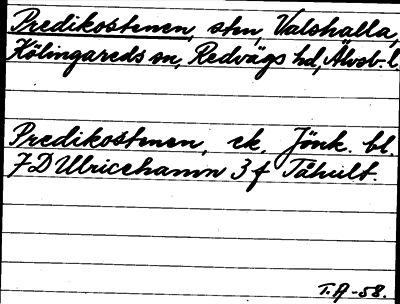 Predikostenen, sten, Valshalla,
Kölingareds sn, Redvägs hd, Älvsb. l.
Predikostenen, ek. Jönk. bl.
7D Ulricehamn 3 f Tåhult.
T.A -58.